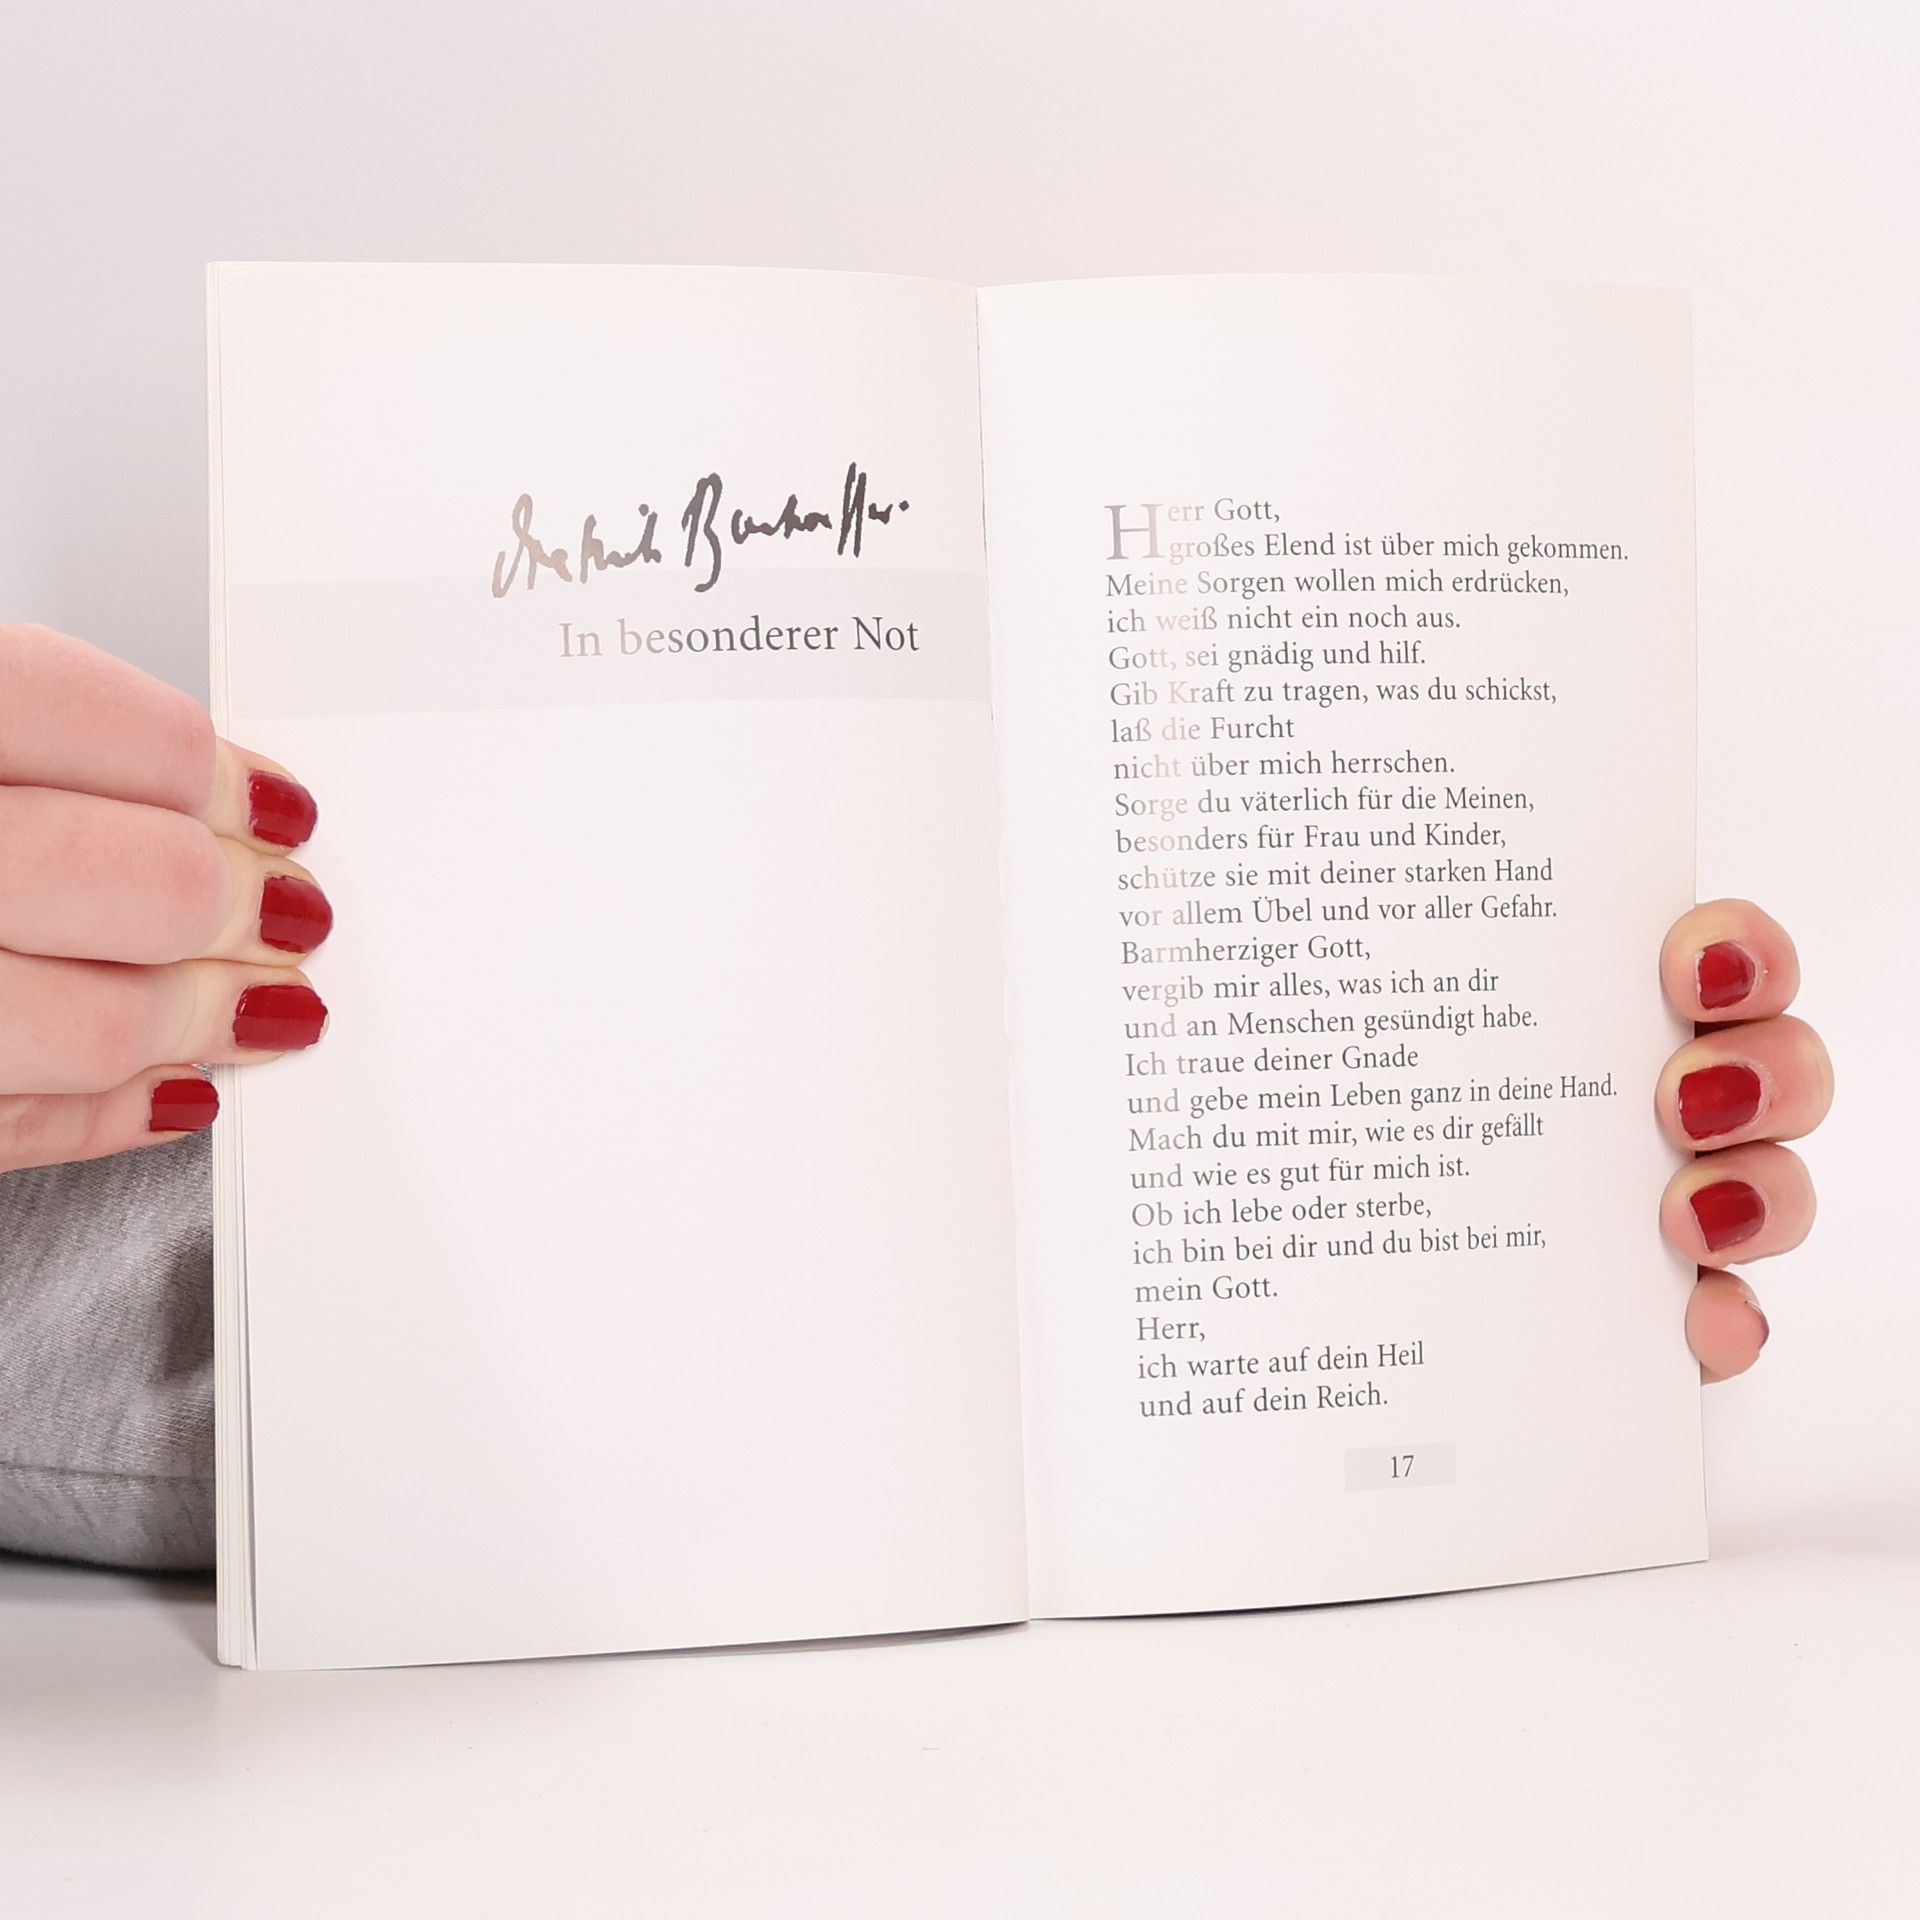 Dietrich Bonhoeffer.
In besonderer Not
Herr Gott,
großes Elend ist über mich gekommen.
Meine Sorgen wollen mich erdrücken,
ich weiß nicht ein noch aus.
Gott, sei gnädig und hilf.
Gib Kraft zu tragen, was du schickst,
laß die Furcht
nicht über mich herrschen.
Sorge du väterlich für die Meinen,
besonders für Frau und Kinder,
schütze sie mit deiner starken Hand
vor allem Übel und vor aller Gefahr.
Barmherziger Gott,
vergib mir alles, was ich an dir
und an Menschen gesündigt habe.
Ich traue deiner Gnade
und gebe mein Leben ganz in deine Hand.
Mach du mit mir, wie es dir gefällt
und wie es gut für mich ist.
Ob ich lebe oder sterbe,
ich bin bei dir und du bist bei mir,
mein Gott.
Herr,
ich warte auf dein Heil
und auf dein Reich.
17